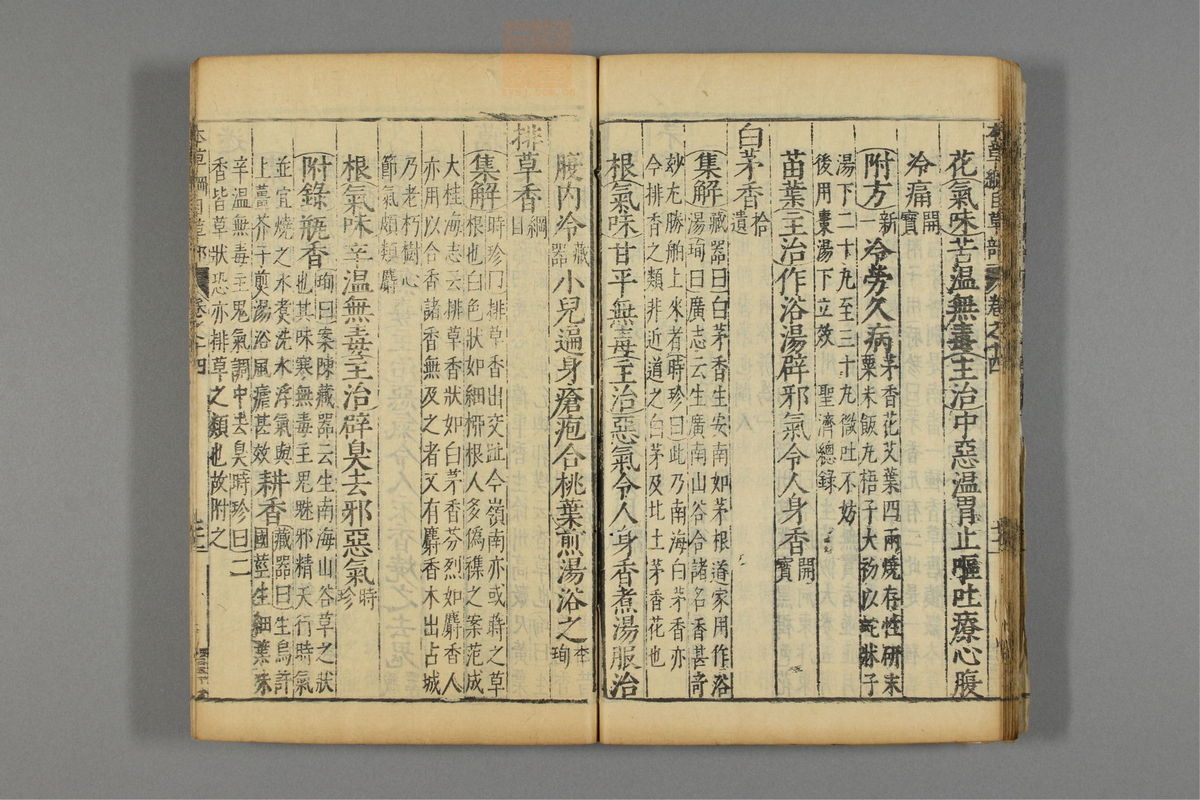 本草綱目草部 卷之十四
花氣味苦温無毒主治中惡温胃止嘔吐療心腹
冷痛開寶
附方新冷勞久病茅香花艾葉四兩燒存性研末
粟米飯丸梧子大初以蛇牀子
湯下二十丸至三十丸微吐不妨
後用棗湯下立效 聖濟總錄
苗葉主治作浴湯辟邪氣令人身香開寶
白茅香拾遺
集解藏器曰白茅香生安南如茅根道家用作浴
湯珣曰廣志云生廣南山谷合諸名香甚奇
妙尤勝舶上來者時珍曰此乃南海白茅香亦
今排香之類非近道之白茅及北土茅香花也
根氣味甘平無毒主治惡氣令人身香煮湯服治
腹内冷藏器小兒遍身瘡疱合桃葉煎湯浴之李珣
排草香綱目
集解時珍曰排草香出交趾今嶺南亦或蒔之草
根也白色狀如細柳根人多僞雜之案范成
大桂海志云排草香狀如白茅香芬烈如麝香人
亦用以合香諸香無及之者又有麝香木出占城
乃老朽樹心
節氣頗類麝
根氣味辛温無毒主治辟臭去邪惡氣時珍
附錄瓶香珣曰案陳藏器云生南海山谷草之狀
也其味寒無毒主鬼魅邪精天行時氣
並宜燒之水煮洗水浮氣與耕香藏器曰生烏滸
國莖生細葉味
上薑芥子煎湯浴風瘧甚效
辛温無毒主鬼氣調中去臭時珍曰二
香皆草狀恐亦排草之類也故附之
本草綱目草部 卷之十四